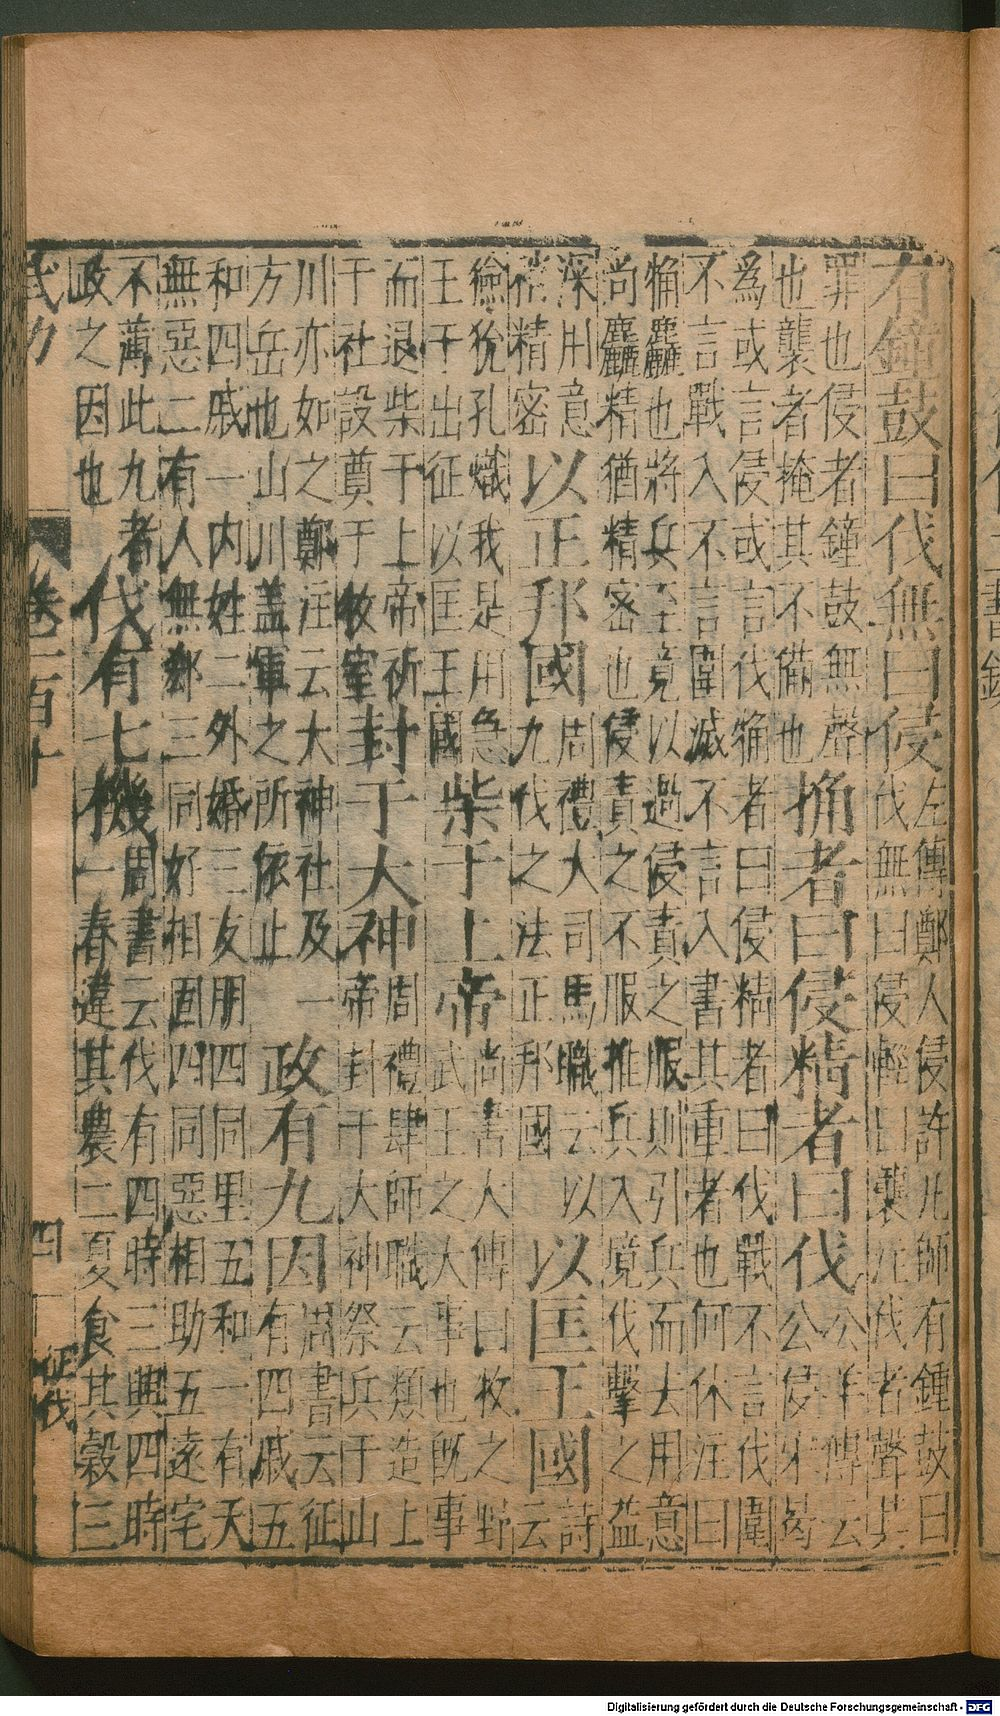 有鐘鼓曰伐無曰侵
左傳鄭人侵許凡師有鍾鼓曰
伐無曰侵輕曰襲注伐者聲其
罪也侵者鐘鼓無聲
也襲者掩其不備也
捔者曰侵精者曰伐
公羊傳云
公侵宋曷
為或言侵或言伐捔者曰侵精者曰伐戰不言伐圍
不言戰入不言圍滅不言入書其重者也何休注曰
捔麤也將兵至竟以過侵責之服則引兵而去用意
尚麤精猶精密也侵責之不服推兵入境伐擊之益
深用意
稍精密
以正邦國
周禮大司馬職云以
九伐之法正邦國
以匡王國
詩
云
獫狁孔熾我是用急
王于出征以匡王國
柴于上帝
尚書大傳曰牧之野
武王之大事也既事
而退柴于上帝祈
于社設奠于牧室
封于大神
周禮肆師職云類造上
帝封于大神祭兵于山
川亦如之鄭注云大神社及一
方岳也山川盖軍之所依止
政有九因
周書云征
有四戚五
和四戚一内姓二外婚三友朋四同里五和一有天
無惡二有人無郄三同好相固四同惡相助五遠宅
不薄此九者
政之因也
伐有七機
周書云伐有四時三興四時
一春違其農二夏食其穀三
武功
卷一百十
四
征伐
Digitalisierung gefördert durch die Deutsche Forschungsgemeinschaft - DFG